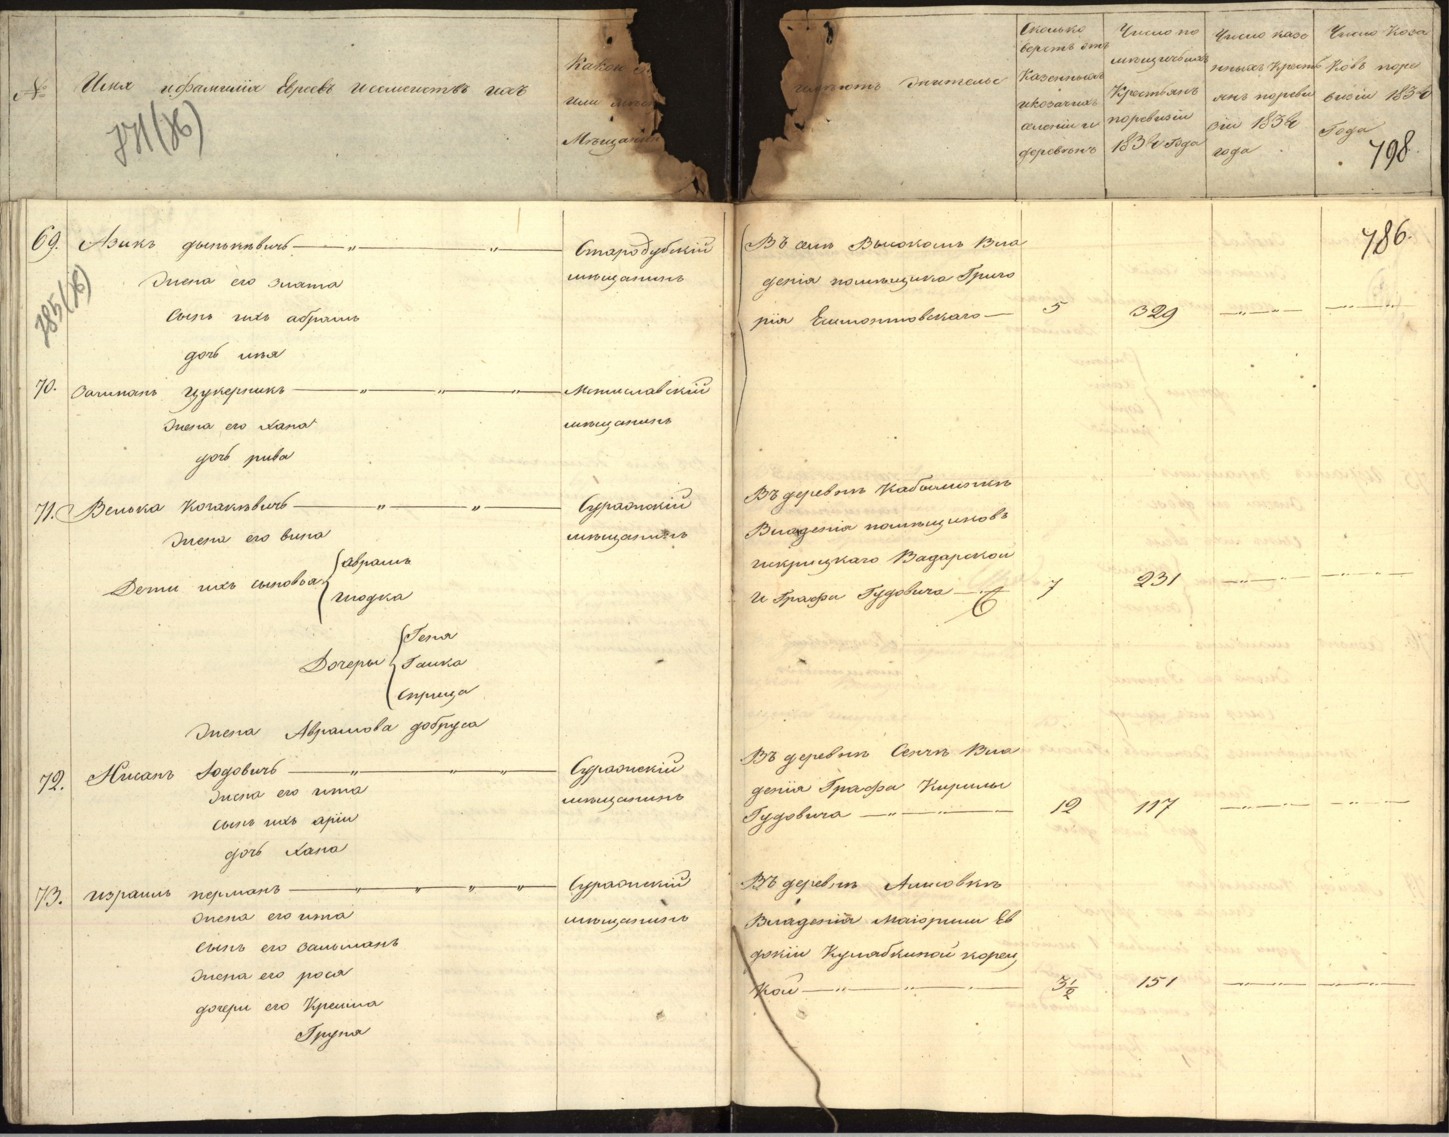 №
Имя и фамилія Евреевъ и семействъ ихъ
771(об)
Какой
или
Мѣщанинъ
имѣютъ жительс
Сколько
верстъ отъ
Казенныхъ
и козачихъ
селеніи и
деревень
Число по
мѣщичьихъ
Крестьянъ
по ревизіи
1834 Года
Число казе
нныхъ Кресть
янъ по реви
зіи 1834
года
Число Коза
ковъ по ре
визіи 1834
Года
798
69. Азикъ
Жена его Злата
сынъ ихъ абрамъ
дочь
785(об)
Стародубскій
мѣщанинъ
Въ селѣ Высокомъ Вла
денія помѣщика Григо
рія Есимонтовскаго — 5 329
786.
70. Залманъ цукерникъ
Жена его Хана
дочь рива
Мстиславскій
мѣщанинъ
71. Велька
Жена его вина
Дети ихъ сыновья
Аврамъ
Июдка
Дочеры
Геня
Ганка
Сприца
Жена Аврамова добруса
Суражскій
мѣщанинъ
Въ деревнѣ
Владенія помѣщиковъ
искрицкаго
И Графа Гудовича — 6 7 231
72. Нисанъ Юдовичъ
Жена его ита
сынъ ихъ арiи
дочь Хана
Суражскій
мѣщанинъ
Въ деревнѣ Сенчѣ Вла
денія Графа Кирилы
Гудовича — 12 117
73. израиль перманъ
Жена его ита
сынъ его залманъ
Жена его рося
дочери его Крейна
Груня
Суражскій
мѣщанинъ
Въ деревнѣ Алисовкѣ
Владенія маіорши Ев
докіи Кулябкиной корец
кой — 3 1/2 151